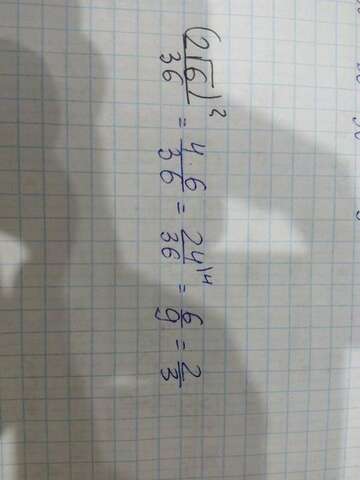 (2√6)²/36 = 4·6/36 = 24\4/36 = 6/9 = 2/3